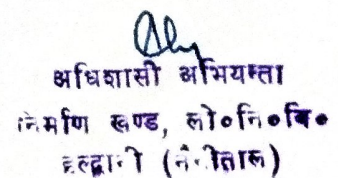 अधिशासी अभियन्ता
निर्माण खण्ड, लो०नि०वि०
हल्द्वानी (नैनीताल)